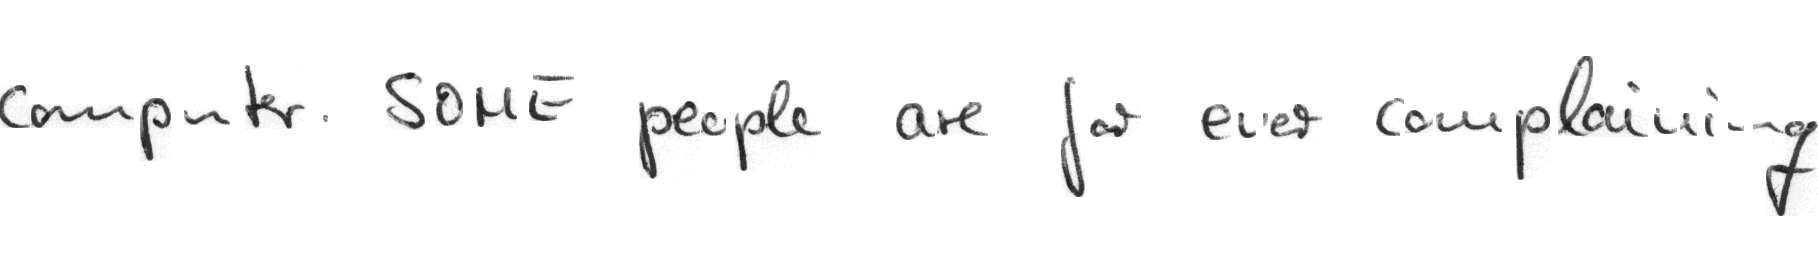 computer. SOME people are for ever complaining